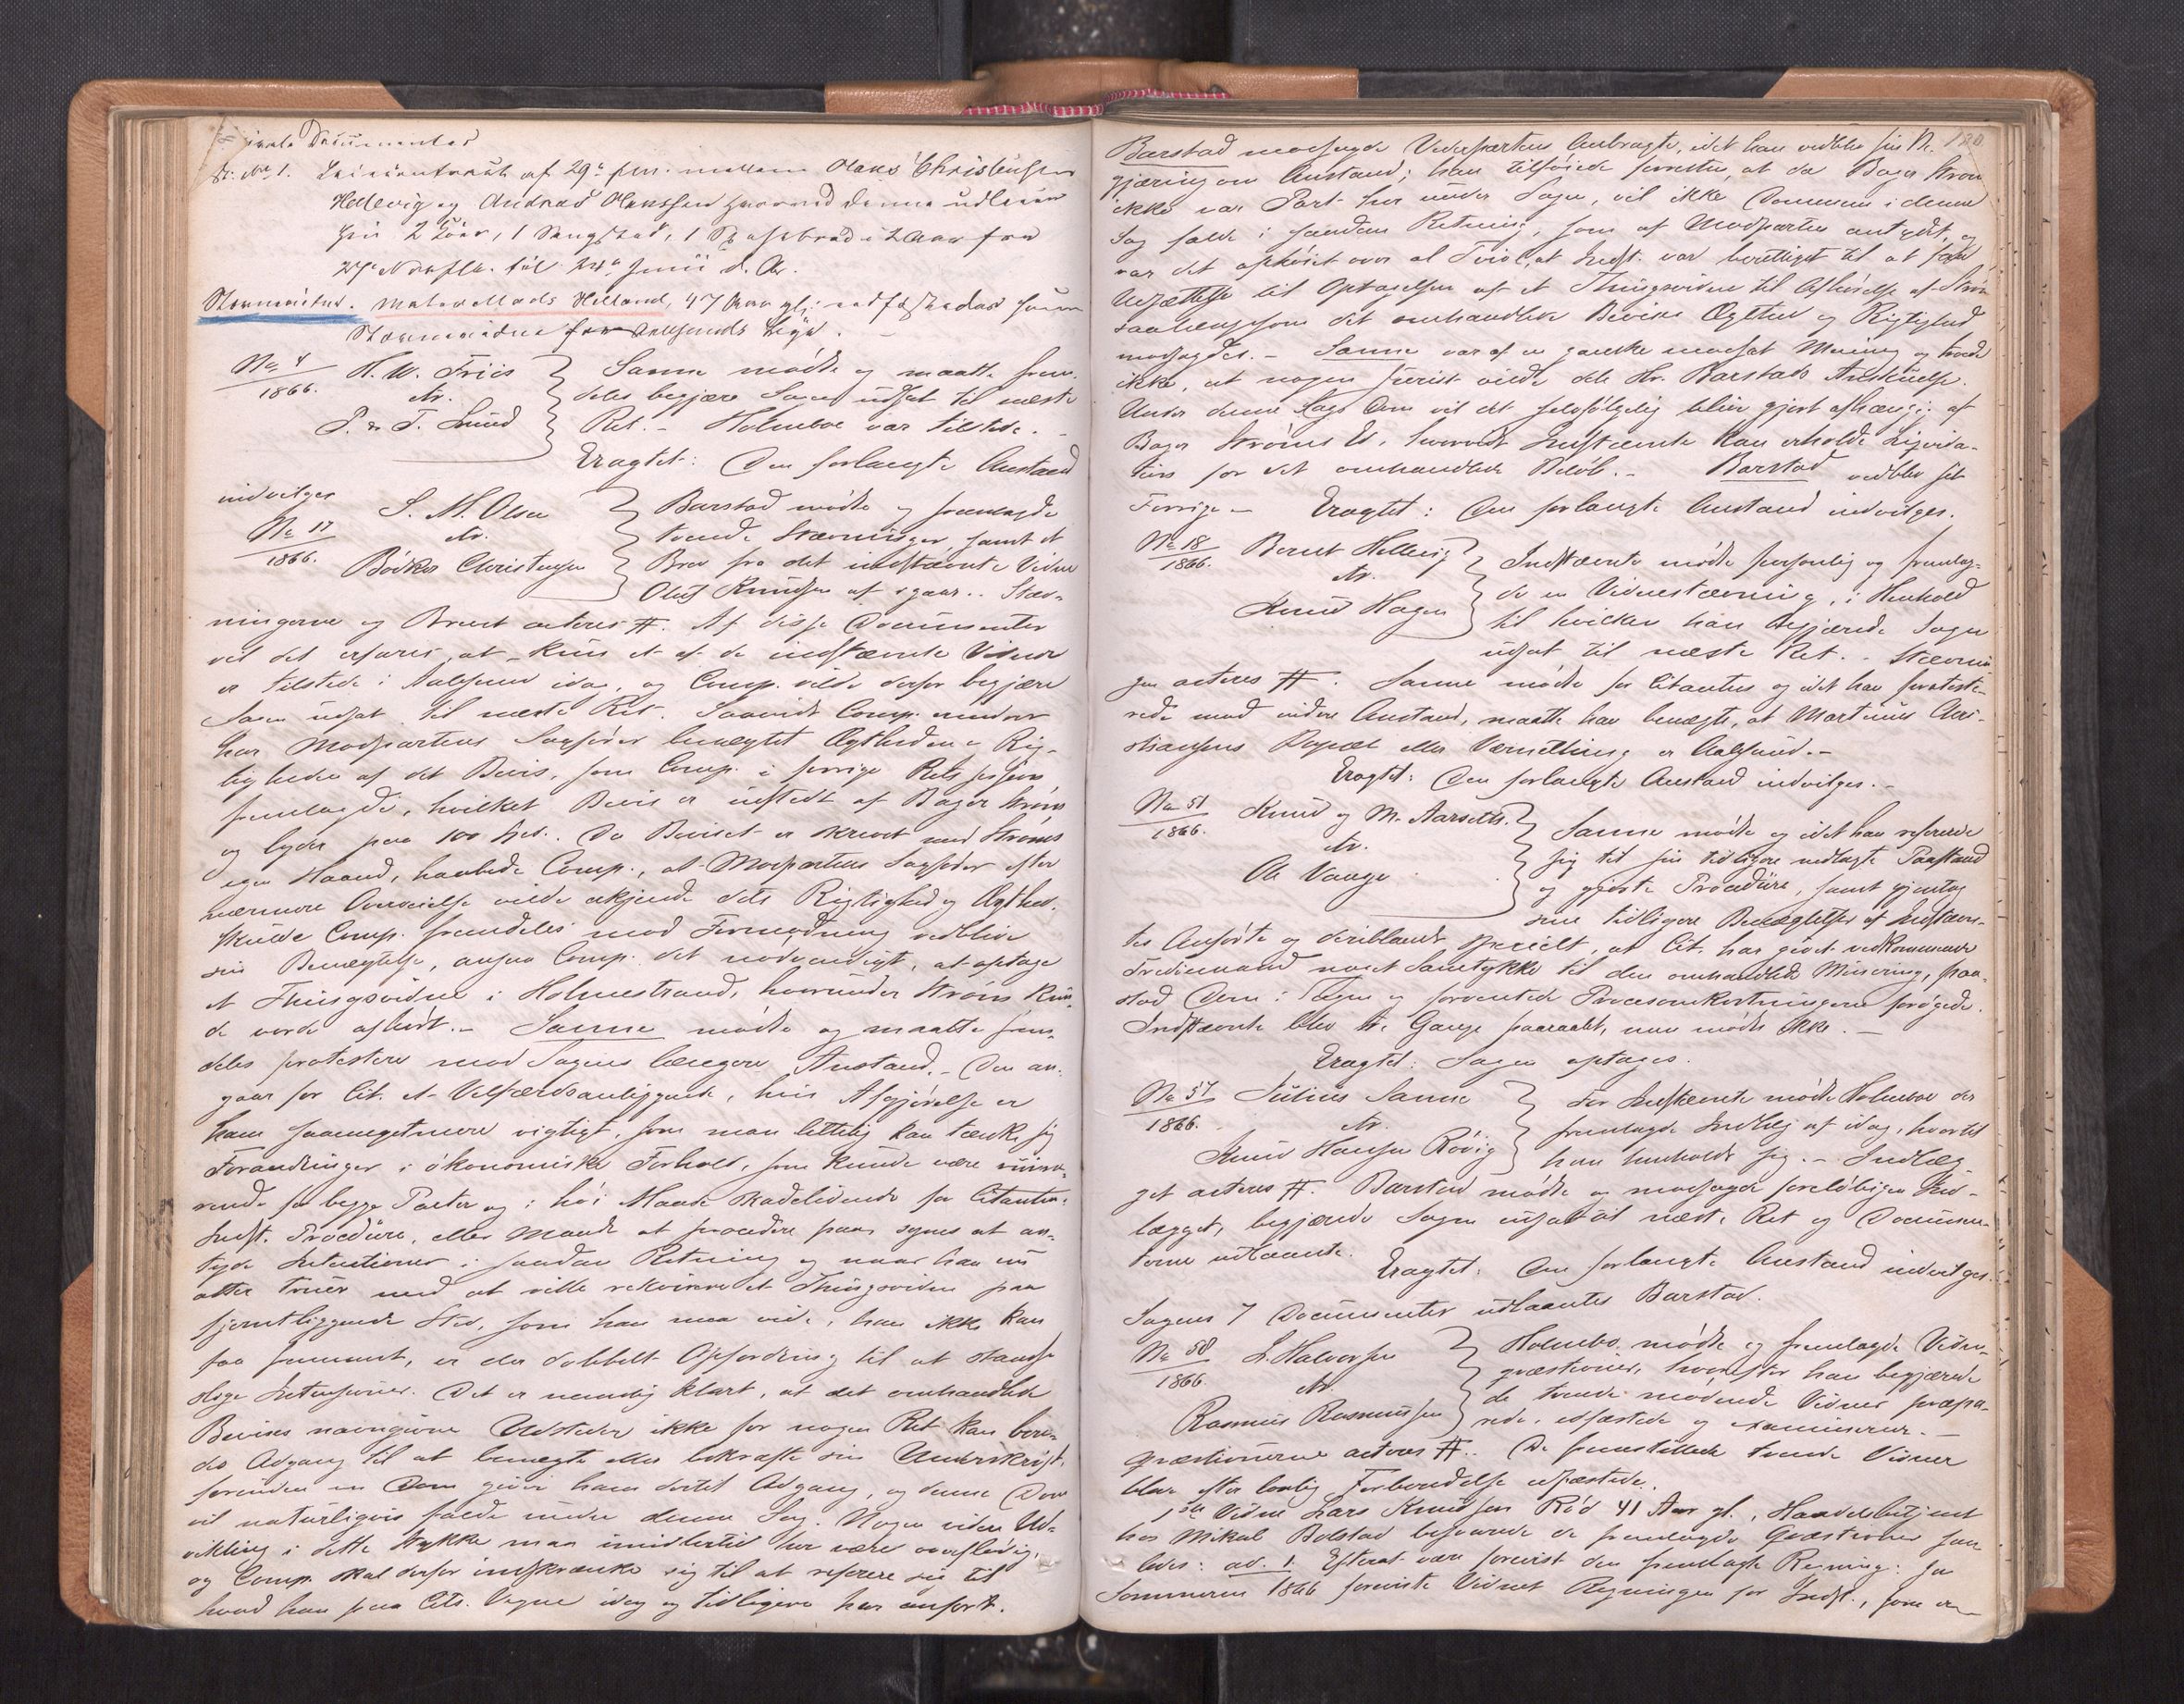 Documenter
No 1. Leiecontrakt af 29de mellem Hans Christensen
Hellevig og Andreas Hanssen hvorved denne udleier
sin 2 1 Sengsted, 1 i 2 Aar fra
24de til 24de Juni d. A.
Stævnevidne. Mats Mads Helland, 47 Aar gl. edfæstedes som
Stævnevidne for Aalesunds
No 4 H. W. Friis Sanne mødte og maatte frem-
1866. ctr. deles begjære Sagen udsat til næste
P. & T. Lund Ret. – Holmboe var tilstede. –
Eragtet: Den forlangte Anstand
indvilges
S. M. Olsen Barstad mødte og fremlagde
No 17 ctr. tvende Stævninger samt et
1866. Bødker Christensen Brev fra det indstævnte Vidne
Oluf Knudsen af igaar. Stæv-
ningerne og Brevet acteres #. Af disse Documenter
vil det erfares, at kun et af de indstævnte Vidner
er tilstede i Aalesund idag, og Comp. vilde derfor begjære
Sagen udsat til næste Ret. Saavidt Comp. erindrer
har Modpartens Sagfører benægtet Ægtheden og Rig-
tigheden af det Bevis, som Comp. i forrige Retssession
fremlagde, hvilket Bevis er udstedt af Bager Strøm
og lyder paa 100 Spd. Da Beviset er skrevet med Strøms
egen Haand, haabede Comp., at Modpartens Sagfører efter
nærmere Overveielse vilde erkjende dets Rigtighed og Ægthed.
Skulde Comp. fremdeles mod Formodning vedblive
sin Benægtelse, ansaa Comp. det nødvendigt, at optage
et Thingsvidne i Holmestrand, hvorunder Strøm kun-
de vorde afhørt. – Sanne mødte og maatte frem-
deles protestere mod Sagens længere Anstand. – Den an-
gaar for Cit. et Velfærdsanliggende, hvis Afgjørelse er
ham saameget mere vigtigt, som man lettelig kan tænke sig
Forandringer i økonomiske Forhold, som kunde være
rende for begge Parter og i høi Maade skadelidende for Citanten.
Indst. Procedure, eller Maade at procedere paa, synes at an-
tyde Intentioner i saadan Retning og naar han nu
atter truer med at ville rekvirere et Thingsvidne paa
fjerntliggende Sted, som han maa vide, han ikke kan
faa fremmet, er der dobbelt Opfordring til at standse
slige Intensioner. Det er nemlig klart, at det omhandlede
Bevises navngivne Udsteder ikke for nogen Ret kan bere-
des Adgang til at benægte eller bekræfte sin Underskrift,
forinden en Dom giver ham dertil Adgang, og denne Dom
vil naturligvis falde under denne Sag. Nogen videre Ud-
vikling i dette Stykke maa imidlertid her være overflødig,
og Comp. skal derfor indskrænke sig til at referere sig til
hvad han paa Cits. Vegne idag og tidligere har anført.
Barstad modsagde Vederpartens Anbragte, idet han vedblev sin Be- 180
gjæring om Anstand; han tilføiede forresten, at da Bager Strøm
ikke var Part her under Sagen, vil ikke Dommen i denne
Sag falde i saadan Retning, som af Modparten antydt, og
var det ophøiet over al Tvivl, at Indst. var berettiget til at faa
Udsættelse til Optagelsen af et Thingsvidne til Afhørelse af Strøm
saalænge som det omhandlede Bevises Ægthed og Rigtighed
modsagdes. – Sanne var af en ganske modsat Mening og troede
ikke, at nogen Jurist vilde dele Hr. Barstads Anskuelse.
Under denne Sags Dom vil det selvfølgelig blive gjort afhængig af
Bager Strøms Ed, hvorvidt Indstævnte kan erholde Liqvida-
tion for det omhandlede Beløb. – Barstad vedblev sit
Forrige – Eragtet: Den forlangte Anstand indvilges.
No 18 Bernt Hellevig Indstævnte mødte personlig og fremlag-
1866. ctr. de en Vidnestævning, i Henhold
Knud Hagen til hvilken han begjærede Sagen
udsat til næste Ret. – Stævnin-
gen acteres #. Sanne mødte for Citanten og idet han proteste-
rede mod videre Anstand, maatte han benægte, at Martinus Chri-
stiansens Bopæl eller Værnething er Aalesund. –
Eragtet: Den forlangte Anstand indvilges. –
No 51 Knud og M. Aarseth. Sanne mødte og idet han refererede
1866. ctr. sig til sin tidligere nedlagte Paastand
Ole Vaage og gjorte Procedure, samt gjentog
sine tidligere Benægtelser af Indstævn-
tes Anførte og deriblandt specielt, at Cit. har givet vedkommende
Trediemand noget Samtykke til den omhandlede Minering, paa-
stod Dom i Sagen og forventede Procesomkostningerne forøgede.
Indstævnte blev tre Gange paaraabt, men mødte ikke. –
Eragtet: Sagen optages.
No 57 Julius Sanne For Indstævnte mødte Holmboe der
1866. ctr. fremlagde Indlæg af idag, hvortil
Knud Hansen Røvig han henholdt sig. – Indlæg-
get acteres #. Barstad mødte og modsagde foreløbigen Ind-
lægget, begjærede Sagen udsat til næste Ret og Documen-
terne udlaante. Eragtet: Den forlangte Anstand indvilges.
Sagens 7 Documenter udlaantes Barstad.
No 58 L. Halvorsen Holmbo mødte og fremlagde Vidne-
1866. ctr. qvæstioner, hvorefter han begjærede
Rasmus Rasmussen de tvende mødende Vidner præpa-
rede, edfæstede og examinerede. –
Qvæstionerne acteres #. De fremstillede tvende Vidner
blev efter lovlig Forberedelse edfæstede.
1ste Vidne Lars Knudsen Rød 41 Aar gl., Handelsbetjent
hos Mikal Bolstad besvarede de fremlagte Qvæstioner saa-
ledes: ad. 1. Efterat være forevist den fremlagte Regning: Ja
Sommeren 1866 foreviste Vidnet Regningen for Indst., som